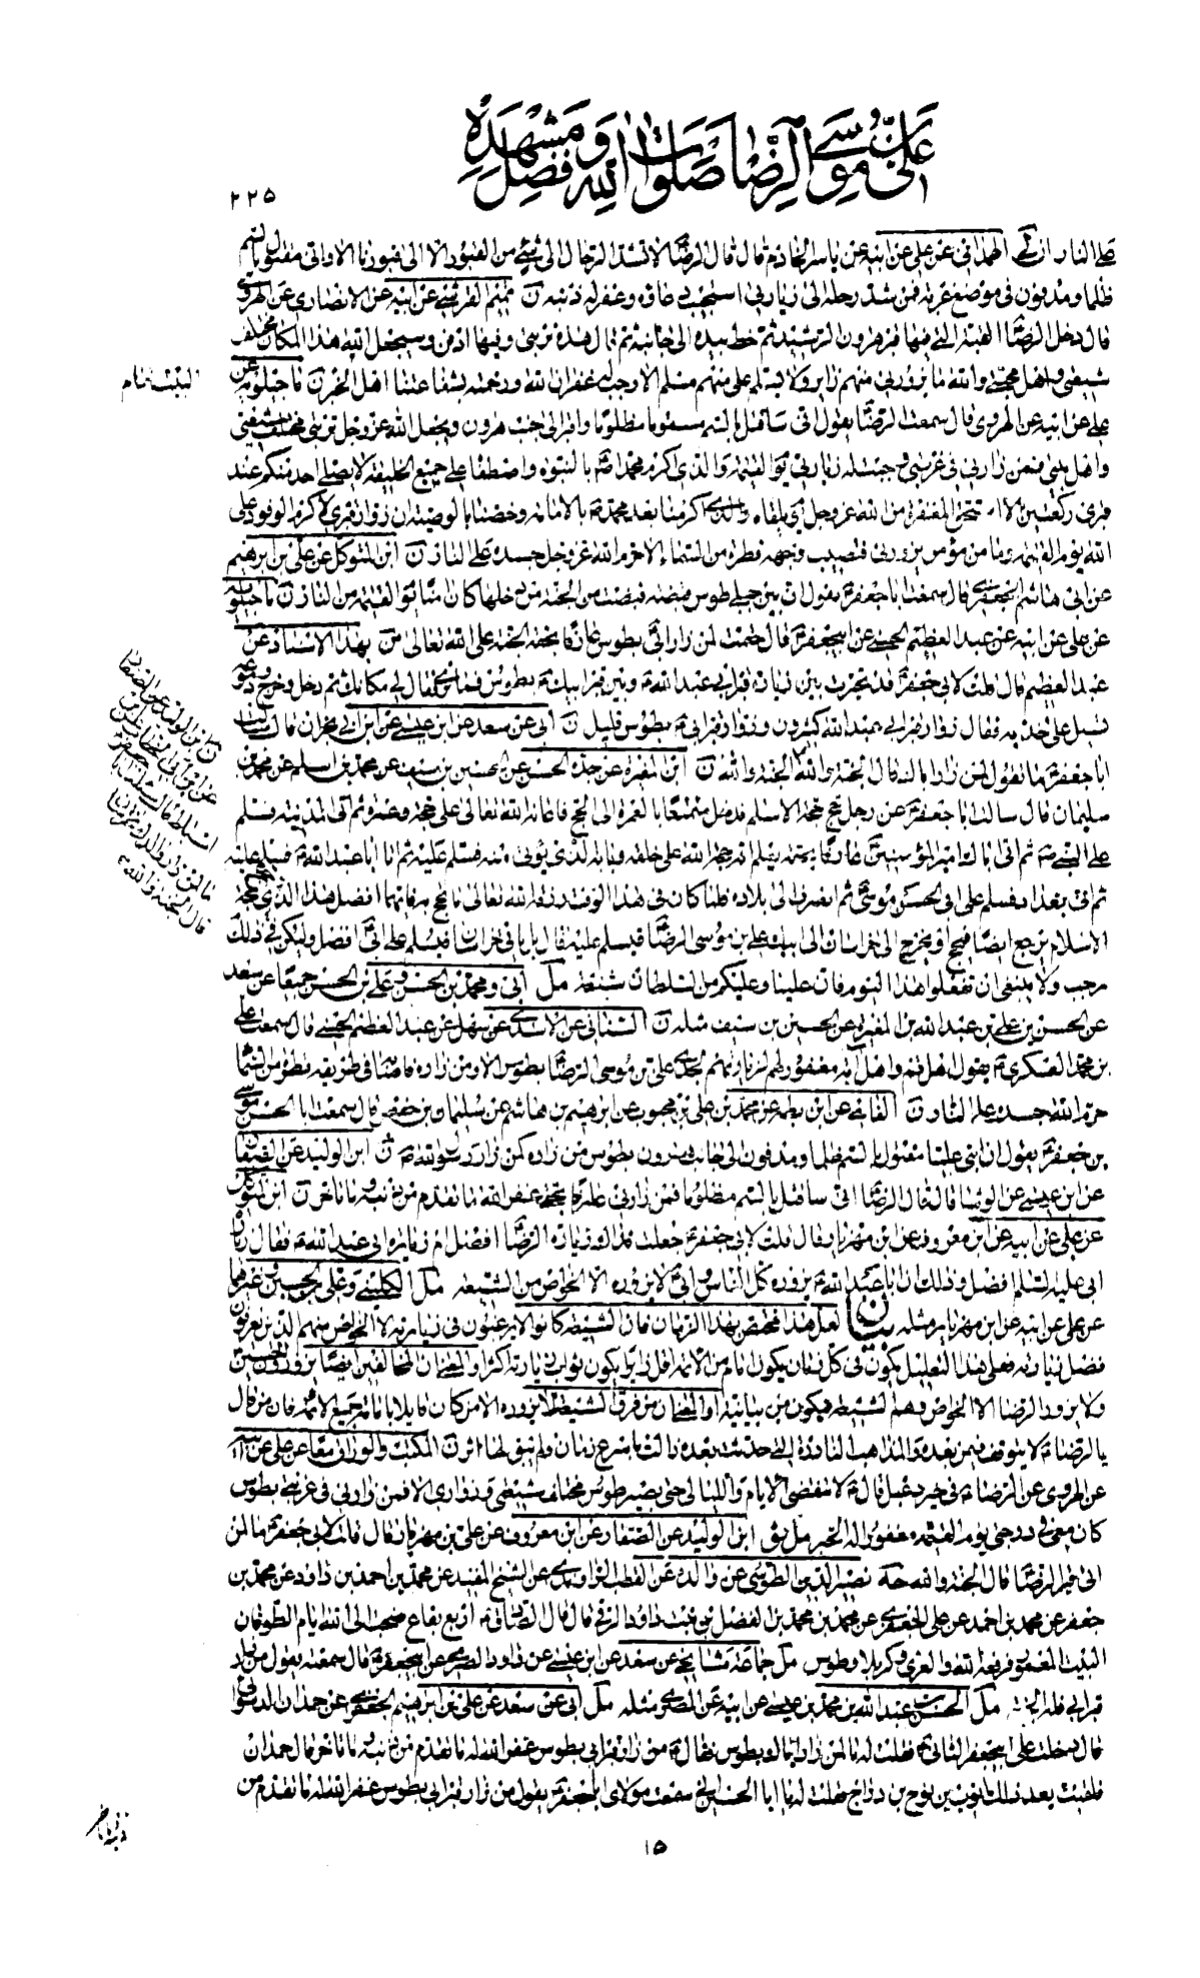 علي بن موسى الرضا صلوات الله ومشهده فضل
٢٢٥
على النار ن الهمداني عن علي عن ابيه عن ياسر الخادم قال قال الرضا لا تشد الرحال الى شئ من القبور الا الى قبورنا الا واني مقتول بالسم
ظلما ومدفون في موضع غربة فمن شد رحله الى زيارتي استجيب دعاؤه وغفر له ذنبه ن تميم القرشي عن ابيه عن الانصاري عن الهروي
قال دخل الرضا القبة التي فيها قبر هرون الرشيد ثم خط بيده الى جانبه ثم قال هذه تربتي وفيها ادفن وسيجعل الله هذا المكان مختلف
شيعتي واهل محبتي والله ما يزورني منهم زاير ولا يسلم علي منهم مسلم الا وجب له غفران الله ورحمته بشفاعتنا اهل البيت ن ماجيلويه عن
علي عن ابيه عن الهروي قال سمعت الرضا يقول اني ساقتل بالسم مسموما مظلوما واقبر الى جنب هرون ويجعل الله عز وجل تربتي مختلف شيعتي
واهل بيتي فمن زارني في غربتي وجبت له زيارتي يوم القيمة والذي اكرم محمدا ص بالنبوة واصطفاه على جميع الخليقة لا يصلي احد منكم عند
قبري ركعتين الا استحق المغفرة من الله عز وجل يوم يلقاه والذي اكرمنا بعد محمد ص بالامامة وخصنا بالوصية ان زوار قبري لاكرم الوفود على
الله يوم القيمة وما من مؤمن يزورني فتصيب وجهه قطرة من السماء الا حرم الله عز وجل جسده على النار ن ابن المتوكل عن علي بن ابرهيم
عن ابي هاشم الجعفري قال سمعت ابا جعفر ع يقول ان بين جبلي طوس قبضة قبضت من الجنة من دخلها كان آمنا يوم القيمة من النار ن ماجيلويه
عن علي عن ابيه عن عبد العظيم الحسني عن ابي جعفر ع قال ضمنت لمن زار ابي بطوس عارفا بحقه الجنة على الله تعالى ن بهذا الاسناد عن
عبد العظيم قال قلت لابي جعفر ع قد تحيرت بين زيارة قبر ابي عبد الله ع وبين قبر ابيك ع بطوس فما ترى فقال لي مكانك ثم دخل وخرج ودموعه
تسيل على خديه فقال زوار قبر ابي عبد الله كثيرون وزوار قبر ابي ع بطوس قليل ن ابي عن سعد عن ابن عيسى عن ابن ابي نجران قال سالت
ابا جعفر ع ما تقول لمن زار اباك قال الجنة والله الجنة والله ن ابن المغيرة عن جده الحسن عن الحسين بن سيف عن محمد بن اسلم عن محمد بن
سليمان قال سالت ابا جعفر ع عن رجل حج حجة الاسلام فدخل متمتعا بالعمرة الى الحج فاعانه الله تعالى على حجه وعمرته ثم اتى المدينة فسلم
على النبي ص ثم اتى اباك امير المؤمنين عارفا بحقه يعلم انه حجة الله على خلقه وبابه الذي يؤتى منه فسلم عليه ثم اتى ابا عبد الله ع فسلم عليه
ثم اتى بغداد فسلم على ابي الحسن موسى ثم انصرف الى بلاده فلما كان في هذا الوقت رزقه الله تعالى ما يحج به فايهما افضل هذا الذي حج حجة
الاسلام يرجع ايضا فيحج او يخرج الى خراسان الى ابيك علي بن موسى الرضا فيسلم عليه قال بل ياتي خراسان فيسلم على ابي افضل وليكن ذلك في
رجب ولا ينبغي ان تفعلوا هذا اليوم فان علينا وعليكم من السلطان شنعة مل ابي ومحمد بن الحسن وعلي بن الحسين جميعا عن سعد
عن الحسن بن علي بن عبد الله بن المغيرة عن الحسين بن سيف مثله ن السناني عن الاسدي عن سهل عن عبد العظيم الحسني قال سمعت علي
بن محمد العسكري ع يقول اهل قم واهل آبه مغفور لهم لزيارتهم لجدي علي بن موسى الرضا بطوس الا ومن زاره فاصابه في طريقه قطرة من السماء
حرم الله جسده على النار ن الفامي عن ابن بطة عن محمد بن علي بن محبوب عن ابرهيم بن هاشم عن سليمان بن حفص قال سمعت ابا الحسن موسى
بن جعفر ع يقول ان ابني عليا مقتول بالسم ظلما ومدفون الى جانب هرون بطوس من زاره كمن زار رسول الله ص ن ابن الوليد عن الصفار
عن ابن عيسى عن الوشا قال قال الرضا اني ساقتل بالسم مظلوما فمن زارني عارفا بحقي غفر الله ما تقدم من ذنبه وما تاخر ن ابن المتوكل
عن علي عن ابيه عن ابن معروف عن ابن مهزيار قال قلت لابي جعفر ع جعلت فداك زيارة الرضا افضل ام زيارة ابي عبد الله ع فقال زيارة
ابي عليه السلم افضل وذلك ان ابا عبد الله ع يزوره كل الناس وابي لا يزوره الا الخواص من الشيعة مل الكليني وعلي بن الحسين وغيرهما
عن علي عن ابيه عن ابن مهزيار مثله بيان لعل هذا مختص بهذا الزمان فان الشيعة كانوا لا يرغبون في زيارته الا الخواص منهم الذين يعرفون
فضل زيارته فعلى هذا التعليل يكون في كل زمان يكون امام من الائمة اقل زايرا يكون ثواب زيارته اكثر او المعنى ان المخالفين ايضا يزورون الحسين
ولا يزور الرضا الا الخواص وهم الشيعة فيكون من بيانية او المعنى ان من فرق الشيعة لا يزوره الا من كان قايلا بامامة جميع الائمة فان من قال
بالرضا ع لا يتوقف فيمن بعده والمذاهب النادرة التي حدثت بعده زالت باسرع زمان ولم يبق لها اثر ن المكتب والوراق معا عن علي عن ابيه
عن الهروي عن الرضا ع في خبر دعبل قال ع لا تنقضي الايام والليالي حتى يصير طوس مختلف شيعتي وزواري الا فمن زارني في غربتي بطوس
كان معي في درجتي يوم القيمة مغفورا له الخبر مل ثو ابن الوليد عن الصفار عن ابن معروف عن علي بن مهزيار قال قلت لابي جعفر ع ما لمن
اتى قبر الرضا قال الجنة والله حة نصير الدين الطوسي عن والده عن القطب الراوندي عن الشيخ المفيد عن محمد بن احمد بن داود عن محمد بن
جعفر عن محمد بن احمد عن علي الجعفري عن محمد بن محمد بن الفضل بن بنت داود الرقي قال قال الصادق ع اربع بقاع ضجت الى الله ايام الطوفان
البيت المعمور فرفعه الله والغري وكربلا وطوس مل جماعة مشايخي عن سعد عن ابن عيسى عن داود الصرمي عن ابي جعفر ع قال سمعته يقول من زار
قبر ابي فله الجنة مل الحسن بن عبد الله بن محمد بن عيسى عن ابيه عن الصرمي مثله مل ابي عن سعد عن علي بن ابرهيم الجعفري عن حمدان الدسوائي
قال دخلت على ابي جعفر الثاني ع فقلت له ما لمن زار اباك بطوس فقال ع من زار قبر ابي بطوس غفر الله له ما تقدم من ذنبه وما تاخر قال حمدان
فلقيت بعد ذلك ايوب بن نوح بن دراج فقلت له يا ابا الحسين اني سمعت مولاي ابا جعفر ع يقول من زار قبر ابي بطوس غفر الله له ما تقدم من
البيت ن تمام
ن ابن الوليد عن الصفار
قال الجنة والله
ذنبه وما تاخر
١٥